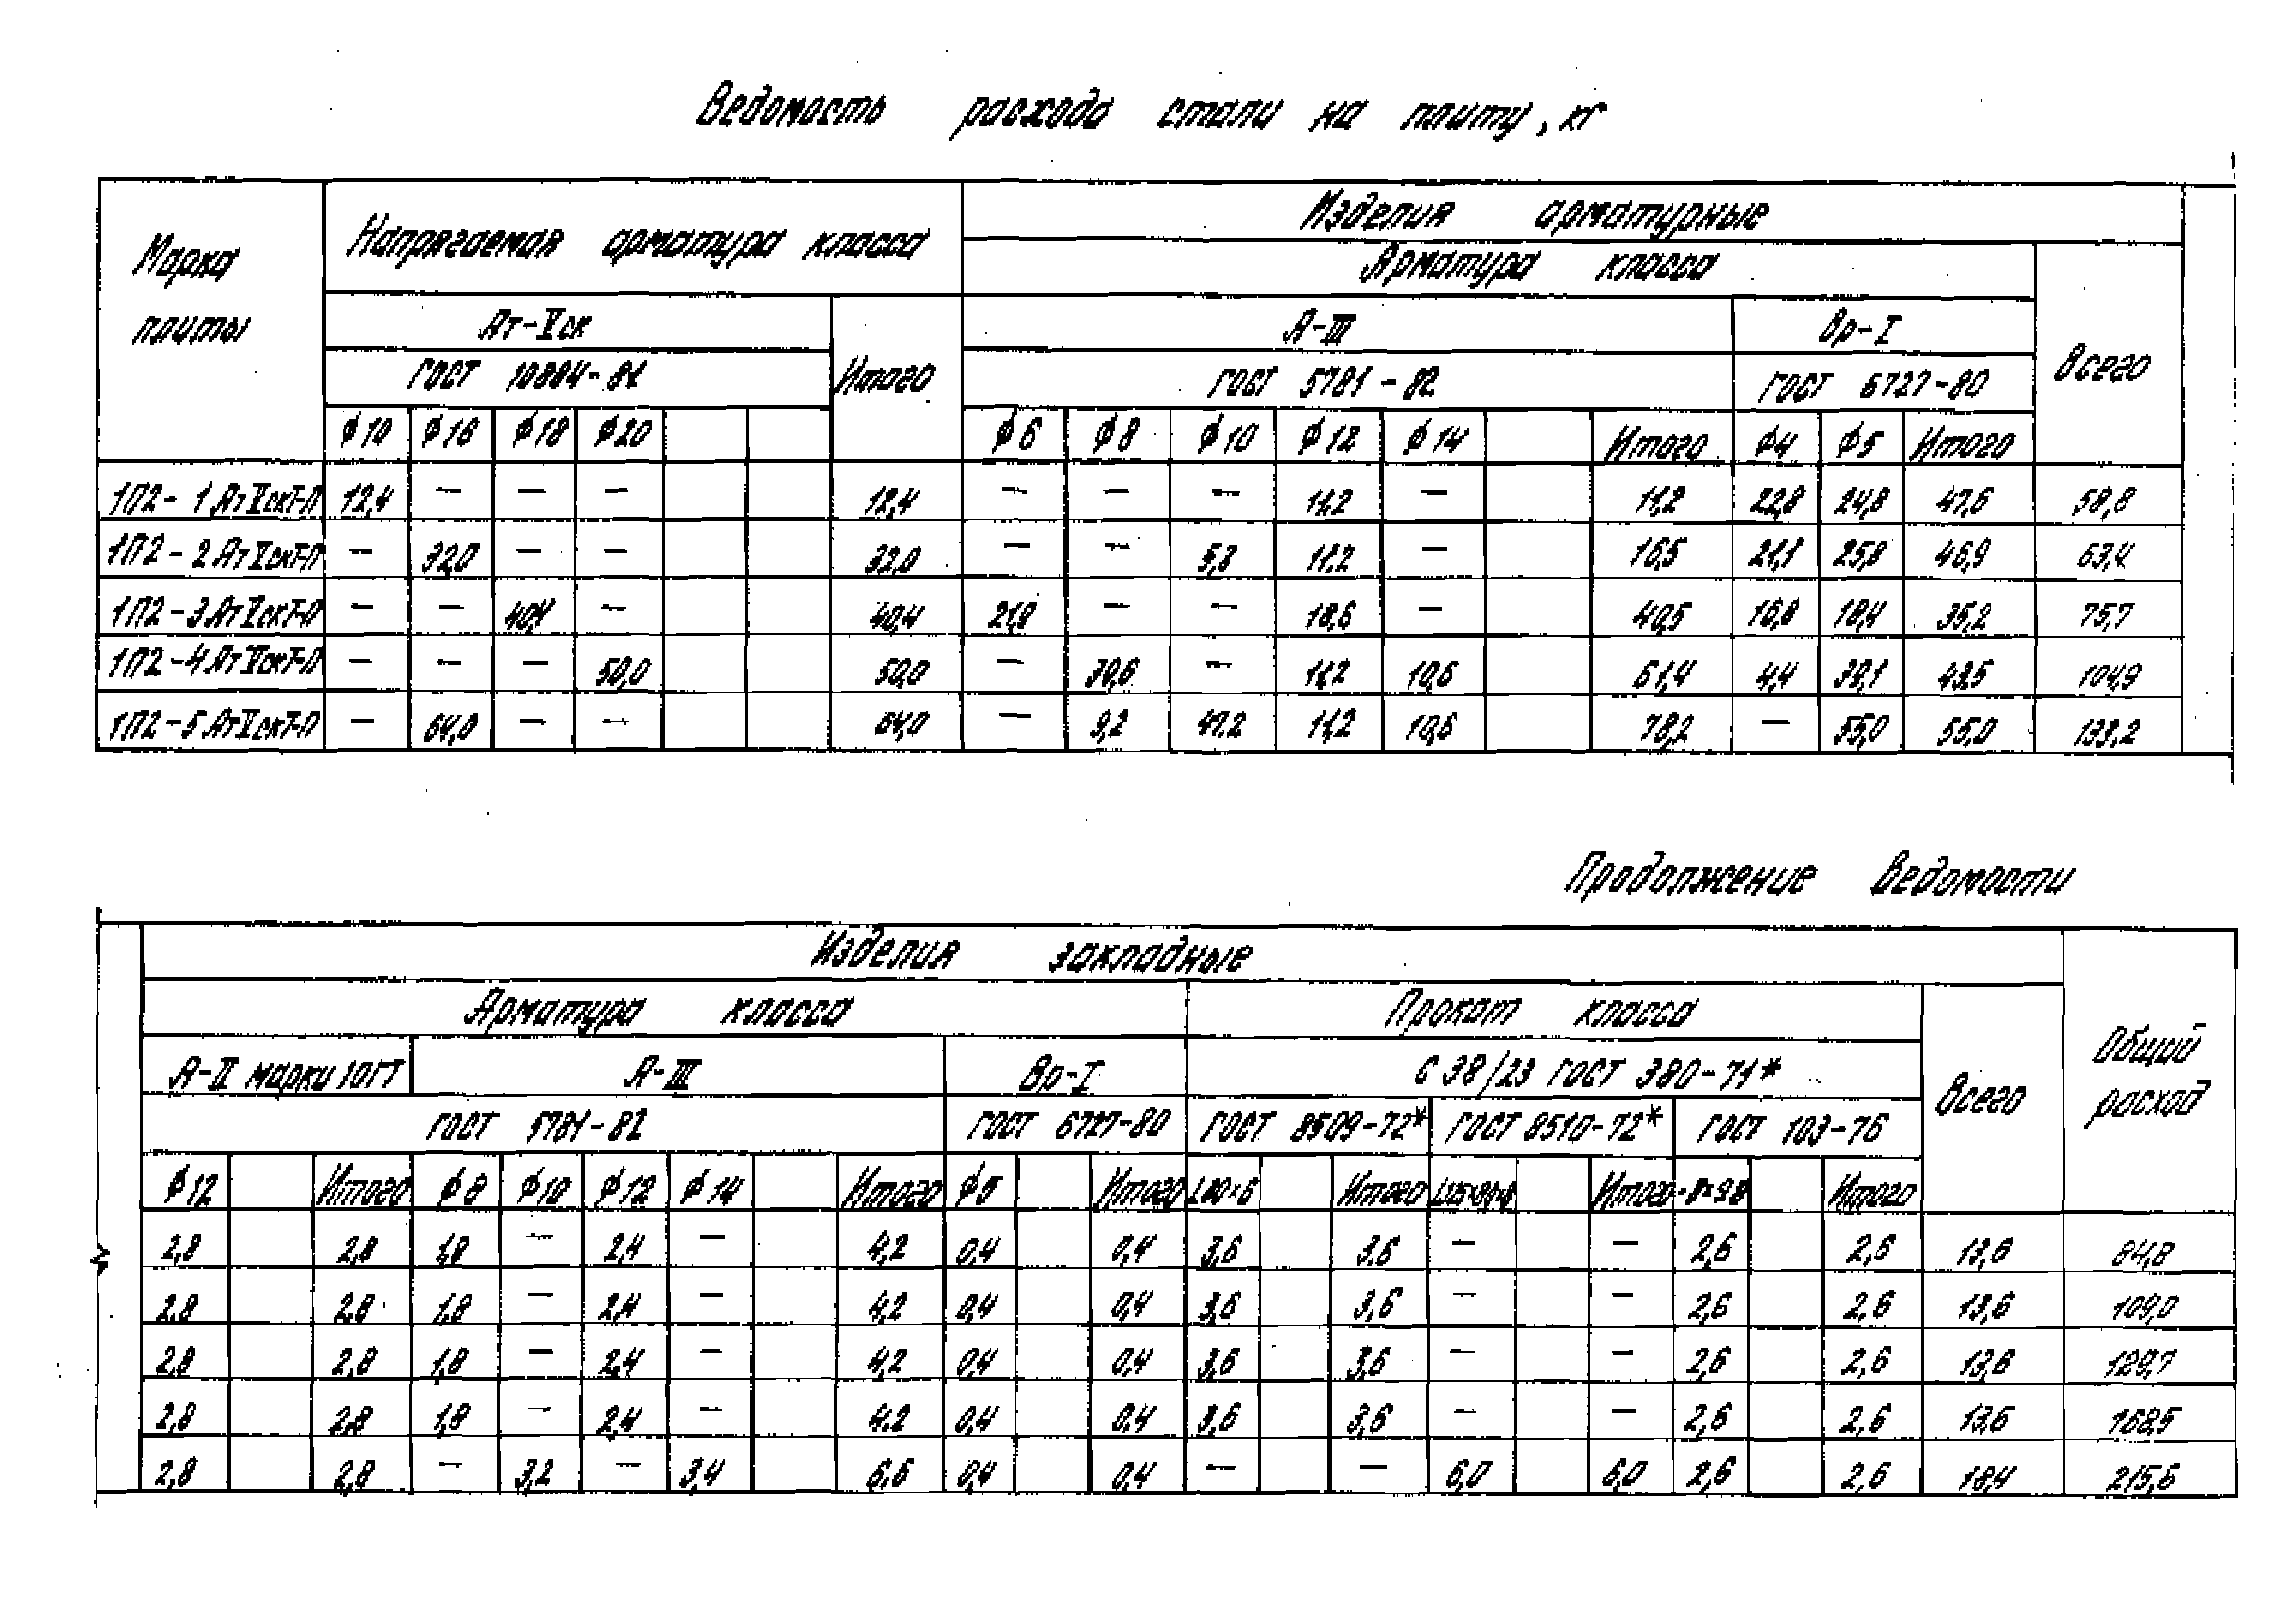 Ведомость расхода стали на плиту, кг
Марка плиты
Напрягаемая арматура класса
Изделия арматурные
Арматура класса
Ат-Vск
Итого
А-III
Вр-I
Всего
ГОСТ 10884-81
ГОСТ 5781-82
ГОСТ 6727-80
ϕ10 ϕ16 ϕ18 ϕ20 ϕ6 ϕ8 ϕ10 ϕ12 ϕ14 Итого ϕ4 ϕ5 Итого
1П2-1АтVскТ-П 12,4 — — — 12,4 — — — 11,2 — 11,2 22,8 24,8 47,6 58,8
1П2-2АтVскТ-П — 32,0 — — 32,0 — — 5,3 11,2 — 16,5 21,1 25,8 46,9 63,4
1П2-3АтVскТ-П — — 40,4 — 40,4 21,9 — — 18,6 — 40,5 16,8 18,4 35,2 75,7
1П2-4АтVскТ-П — — — 50,0 50,0 — 39,6 — 11,2 10,6 61,4 4,4 39,1 43,5 104,9
1П2-5АтVскТ-П — 64,0 — — 64,0 — 9,2 47,2 11,2 10,6 78,2 — 55,0 55,0 133,2
Продолжение ведомости
Изделия закладные
Общий расход
Арматура класса
Прокат класса
Всего
А-II марки 10ГТ
А-III
Вр-I
С 38/23 ГОСТ 380-71*
ГОСТ 5781-82
ГОСТ 6727-80
ГОСТ 8509-72*
ГОСТ 8510-72*
ГОСТ 103-76
ϕ12 Итого ϕ8 ϕ10 ϕ12 ϕ14 Итого ϕ5 Итого L80×6 Итого Итого Итого
2,8 2,8 1,8 — 2,4 — 4,2 0,4 0,4 3,6 3,6 — — 2,6 2,6 13,6 84,8
2,8 2,8 1,8 — 2,4 — 4,2 0,4 0,4 3,6 3,6 — — 2,6 2,6 13,6 109,0
2,8 2,8 1,8 — 2,4 — 4,2 0,4 0,4 3,6 3,6 — — 2,6 2,6 13,6 129,7
2,8 2,8 1,8 — 2,4 — 4,2 0,4 0,4 3,6 3,6 — — 2,6 2,6 13,6 168,5
2,8 2,8 — 3,2 — 3,4 6,6 0,4 0,4 — — 6,0 6,0 2,6 2,6 18,4 215,6